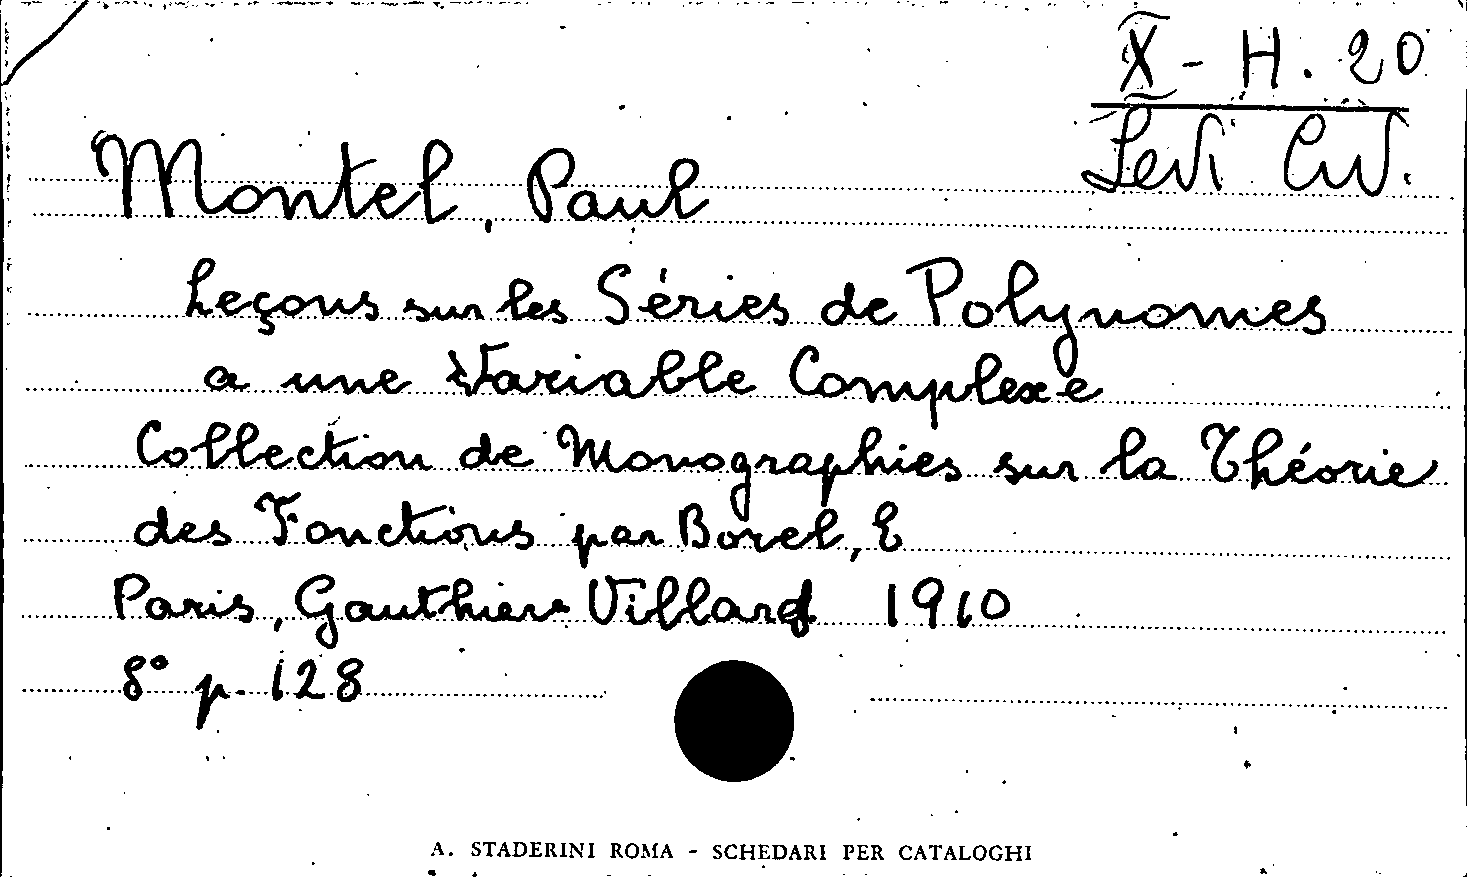 X - H. 20
Levi Civ.
Montel, Paul
Leçons sur les Séries de Polynomes
a une Variable Complexe
Collection de Monographies sur la Théorie
des Fonctions par Borel, E
Paris, Gauthier Villard 1910
8° p. 128
A. STADERINI ROMA - SCHEDARI PER CATALOGHI